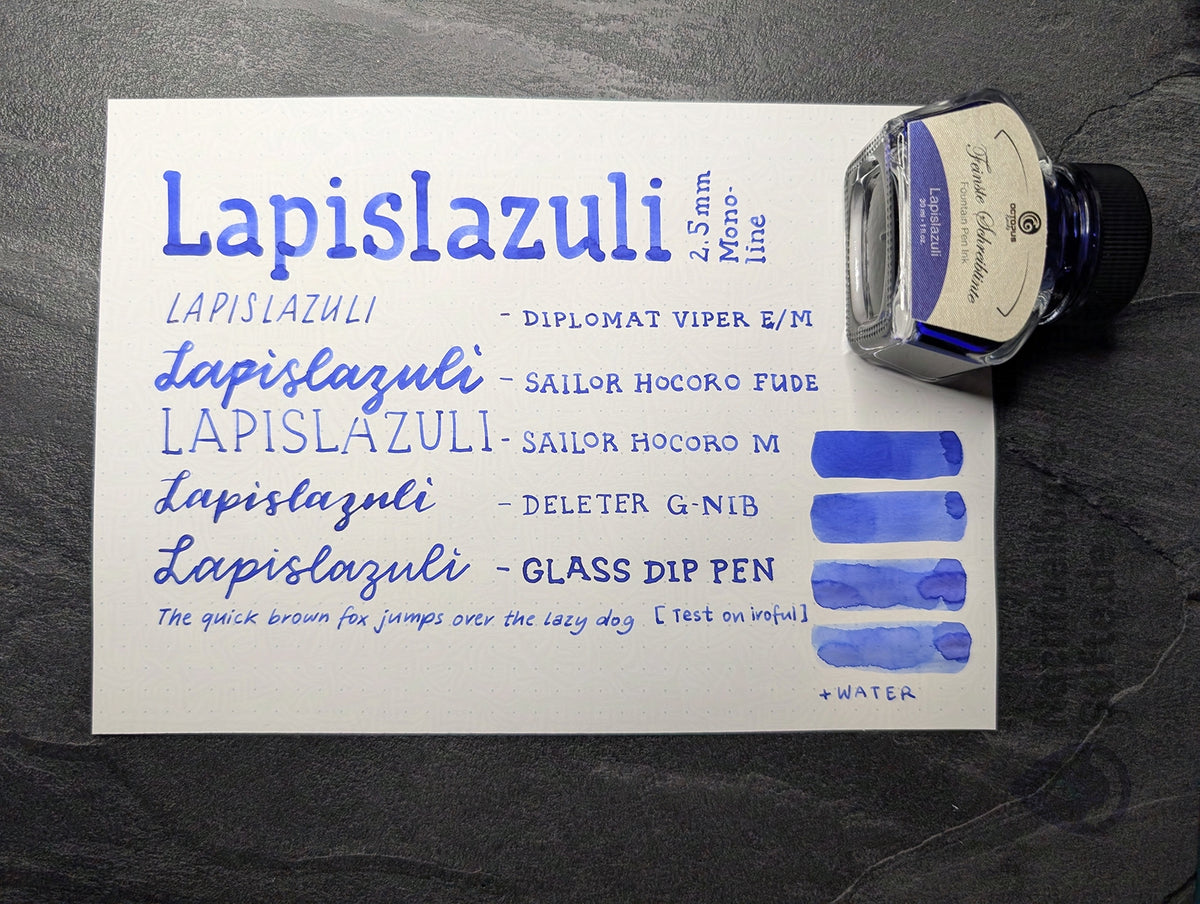 Lapislazuli
2.5mm
Mono-
line
LAPISLAZULI - DIPLOMAT VIPER E/M
Lapislazuli - SAILOR HOCORO FUDE
LAPISLAZULI - SAILOR HOCORO M
Lapislazuli - DELETER G-NIB
Lapislazuli - GLASS DIP PEN
The quick brown fox jumps over the lazy dog [Test on iroful]
+WATER
OCTOPUS
Feinste Schreibtinte
Fountain Pen Ink
Lapislazuli
30 ml • 1 fl oz.